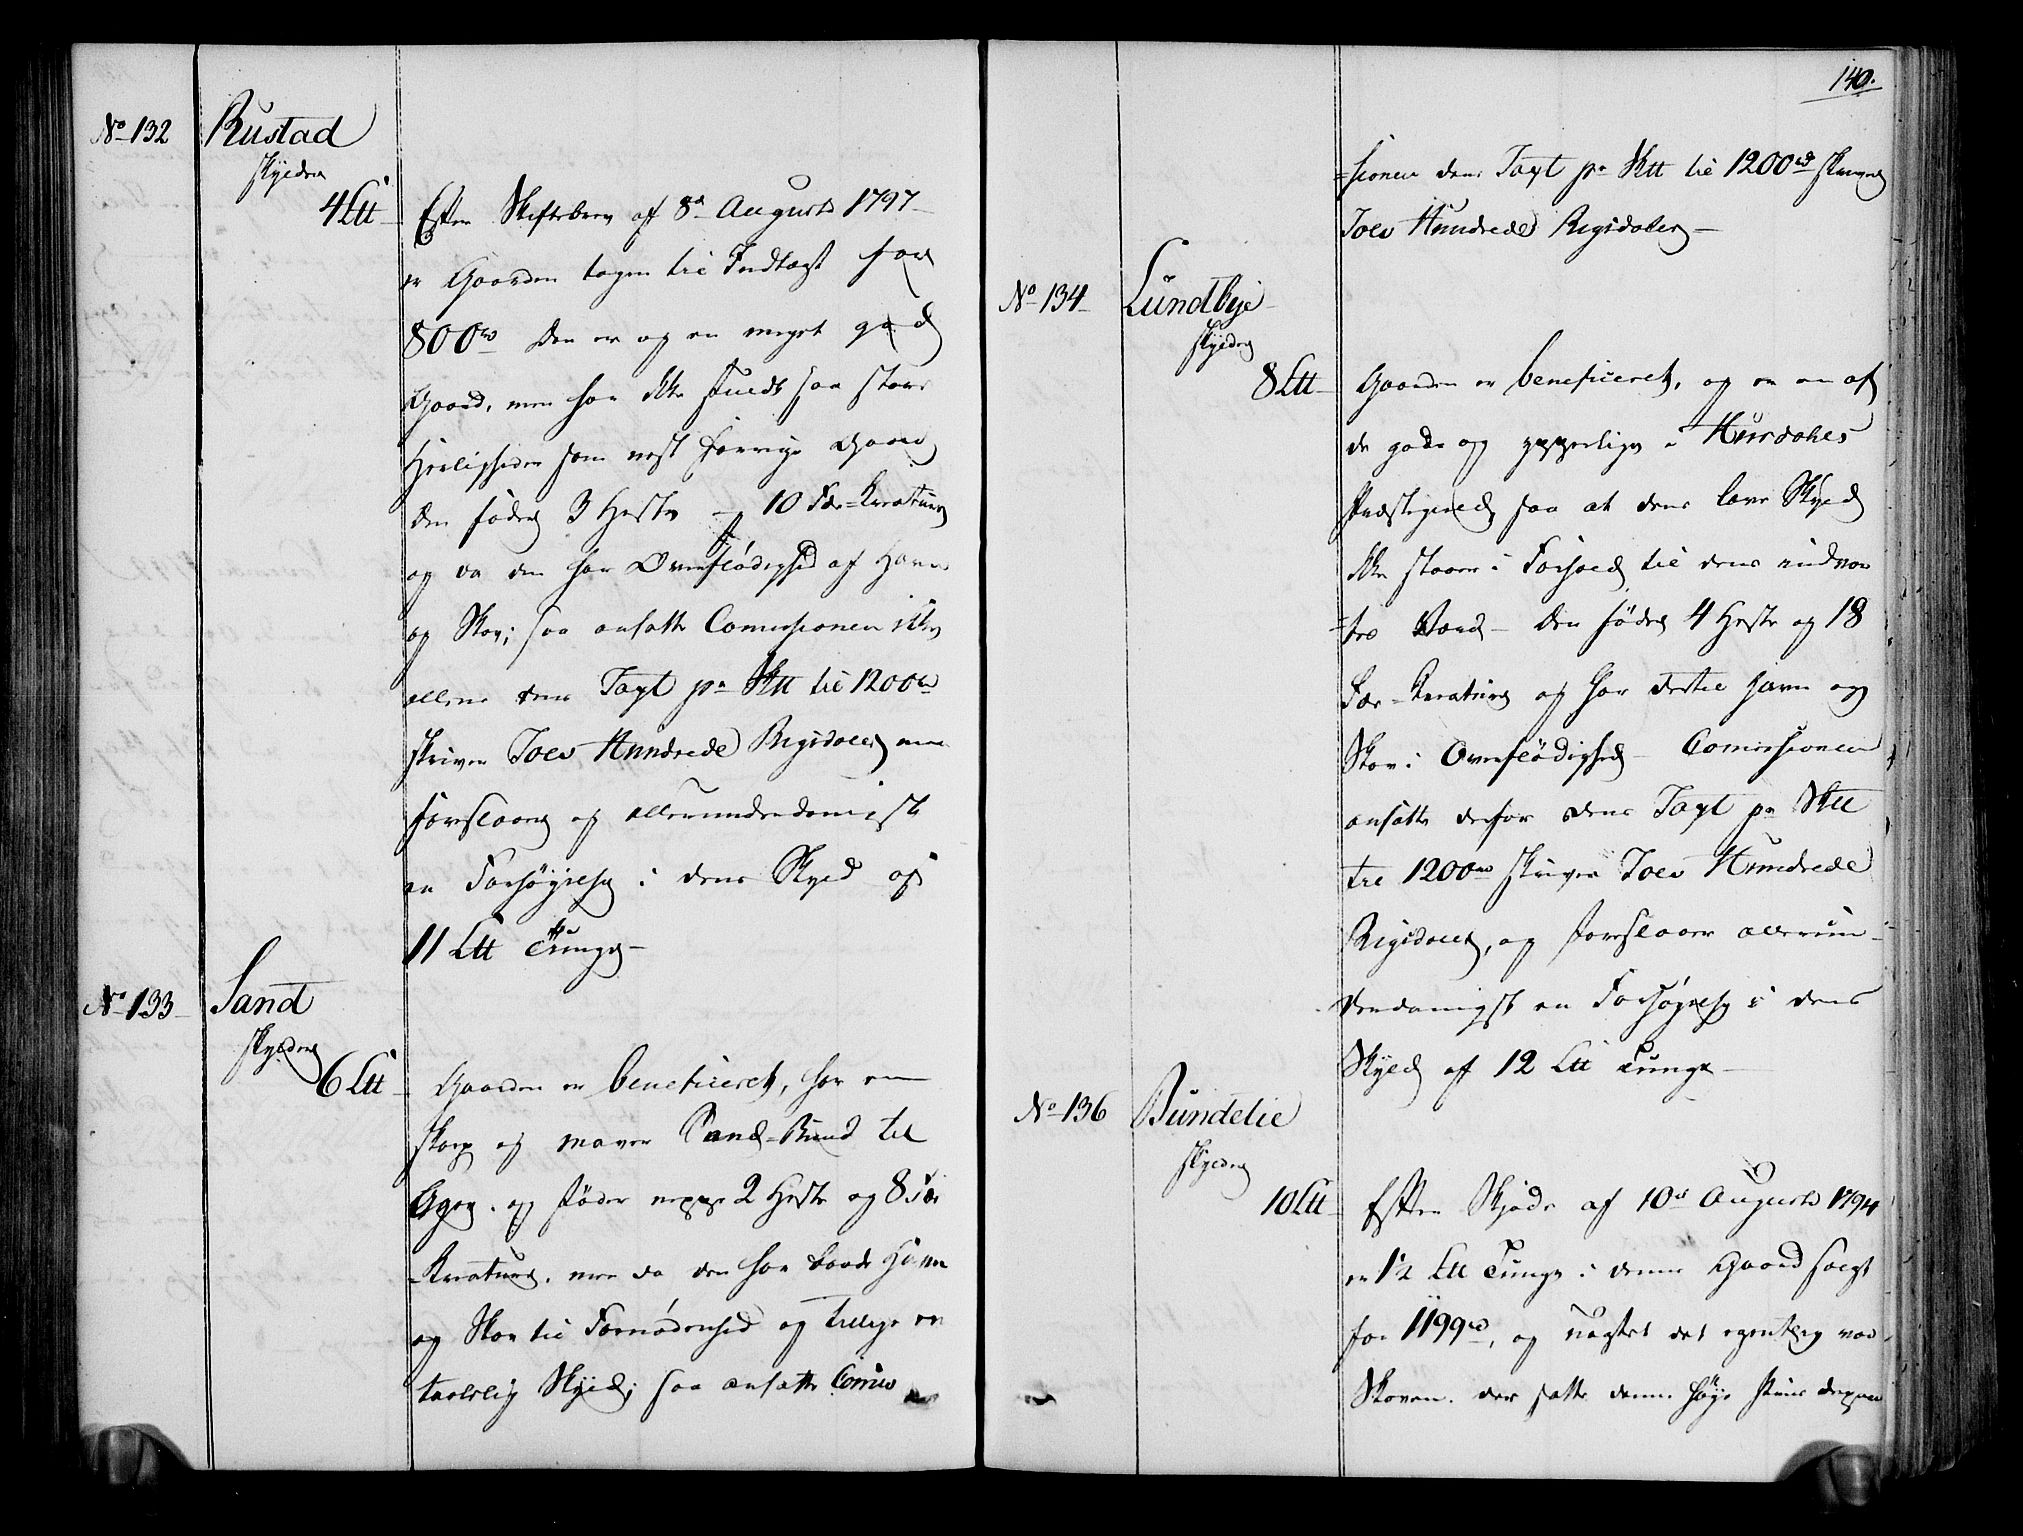 No 132
Rustad
skylder
4 Ltt
Efter Skiftebrev af 8d Augusti 1797
er Gaarden tagen til Indtægt for
800rd den er og en meget god
Gaard, men har ikke fuldt saa store
Herligheder som nest forrige Gaard
den föder 3 Heste – 10 Fæ-Kreature
og da den har Overflödighed af Havn
og Skov; saa ansatte Comissionen ikke
allene dens Taxt pr Sktt til 1200rd
skriver Tolv Hundrede Rigsdaler men
forslaaer og allerunderdanigst
en Forhøyelse i dens Skyld af
11 Ltt Tunge –
No 133
Sand
skylder
6 Ltt
Gaarden er beneficeret, har en
skarp og maver Sand-Bund til
Ager. og föder neppe 2 Heste og 8 Fæ
Kreature. men da den har baade Havn
og Skov til Fornödenhed og tillige en
taalelig Skyld; saa ansatte Comis
140.
=sionen dens Taxt pr Sktt til 1200rd skriver
Tolv Hundrede Rigsdaler –
No 134
Lundbye
skylder
8 Ltt
Gaarden er beneficeret, og en af
de gode og ypperlige i Hurdahls
Præstegield, saa at dens lave Skyld
ikke staaer i Forhold til dens indvor
=tes Værd – den föder 4 Heste og 18
Fæ-Kreature og har dertil Havn og
Skov i Overflödighed – Comissionen
ansatte derfor dens Taxt pr Sktt
til 1200rd skriver Tolv Hundrede
Rigsdaler, og forslaaer allerun-
derdanigst en Forhøyelse i dens
Skyld af 12 Ltt Tunge –
No 136
Bundelie
skylder
10 Ltt
Efter Skjöde af 10d Augusti 1794
er 1½ Ltt Tunge i denne Gaard solgt
for 1199rd, og uagtet det egentlig var
Skoven. der satte denne höye Priis